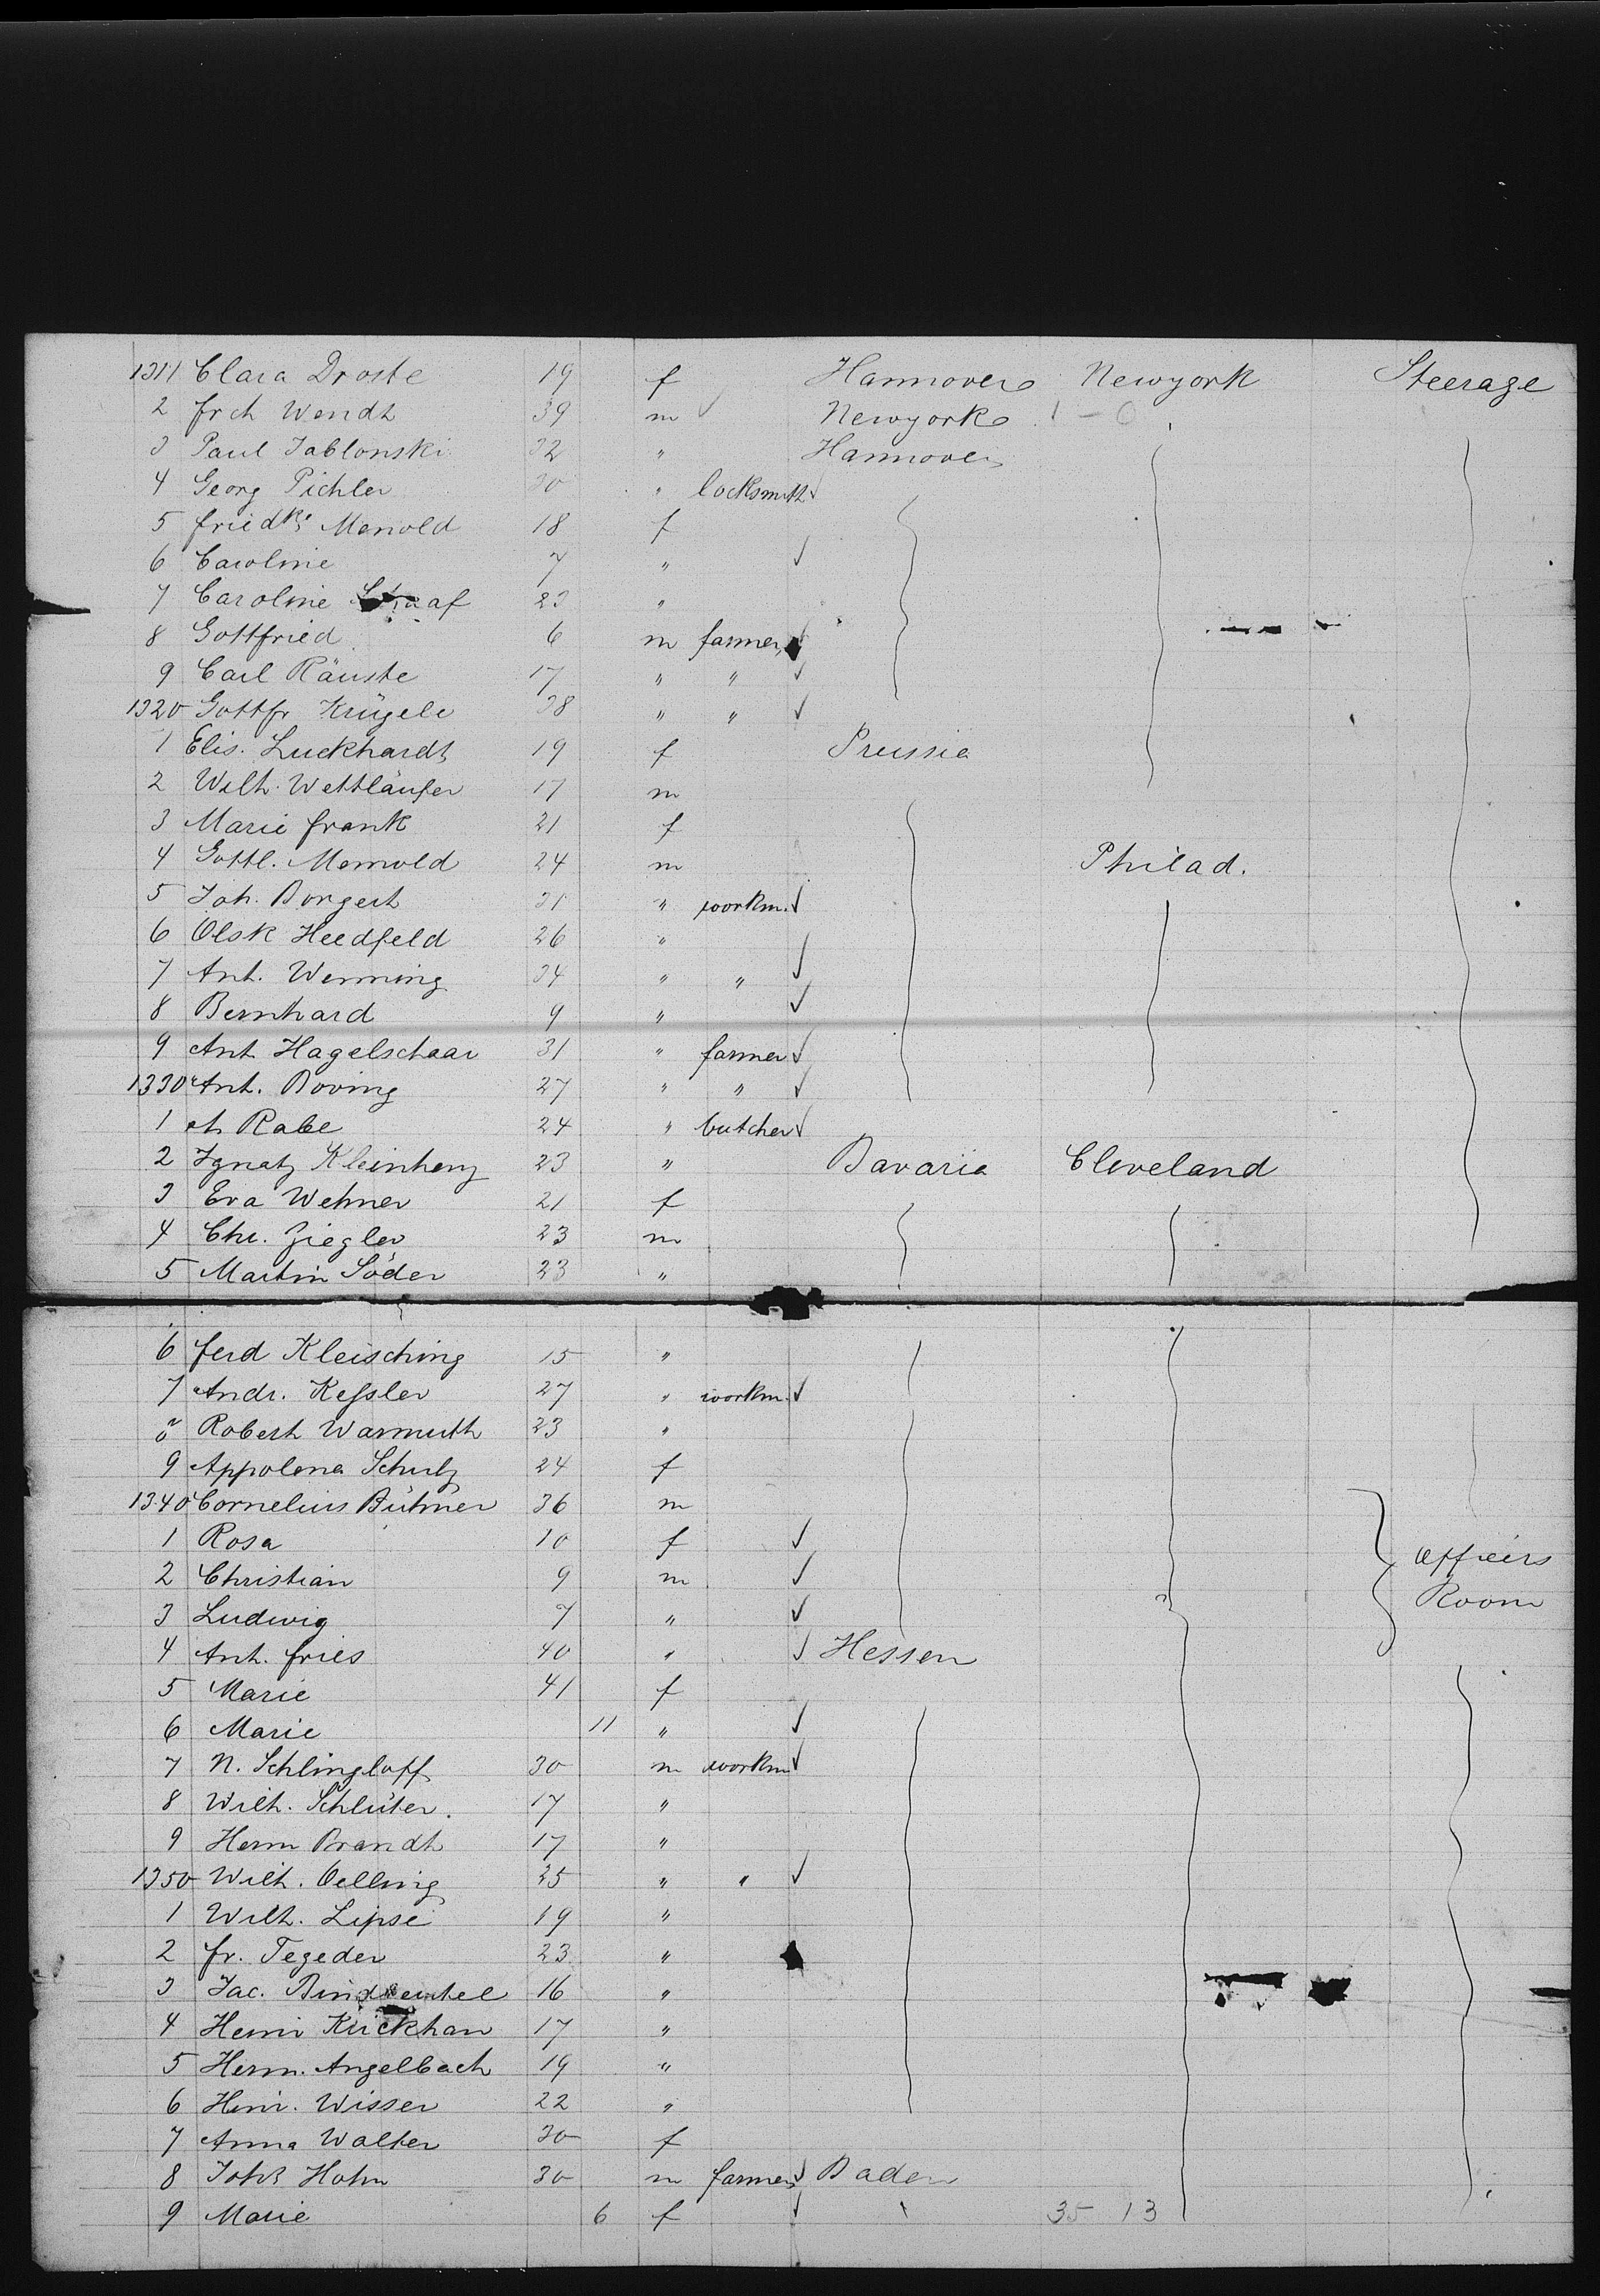 1311 Clara Droste 19 f Hannover Newyork Steerage
2 frch Wendt 39 m Newyork 1 - 0
3 Paul Jablonski 32 " Hannover
4 Georg Pichler 30 " locksmith
5 friedke Menold 18 f
6 Caroline 7 "
7 Caroline 23 "
8 Gottfried 6 m farmer
9 Carl Räuste 17 " "
1320 Gottfr Krügele 38 " "
1 Elis. Luckhardt 19 f Prussia
2 Wilh. Wettläufer 17 m
3 Marie frank 21 f
4 Gottl. Mernold 24 m Philad.
5 Joh. Borgert 31 " workm.
6 Olsk Heedfeld 26 "
7 Ant. Wenning 34 " "
8 Bernhard 9 "
9 Ant Hagelschaar 31 " farmer
1330 Ant. Boving 27 " "
1 A Rabe 24 " butcher
2 Ignatz Kleinhenz 23 " Bavaria Cleveland
3 Eva Wehner 21 f
4 Chr. Ziegler 23 m
5 Martin Söder 23 "
6 ferd Kleisching 15 "
7 Andr. Kessler 27 " workm.
8 Robert Warmuth 23 "
9 Appolona Schulz 24 f
1340 Cornelius Bühner 36 m
1 Rosa 10 f officiers
2 Christian 9 m Room
3 Ludwig 7 "
4 Ant. fries 40 " Hessen
5 Marie 41 f
6 Marie 11 "
7 N. Schlingloff 30 m workm
8 Wilh. Schlüter. 17 "
9 Herm Brandt 17 "
1350 Wilh. Oelling 25 " "
1 Wilh. Lipse 19 "
2 fr. Tegeder 23 "
3 Jac. 16 "
4 Heinr Krickhan 17 "
5 Herm. Angelbach 19 "
6 Heinr. Wisser 22 "
7 Anna Walter 30 f
8 Johs Hohn 30 m farmer Baden
9 Marie 6 f 35 13